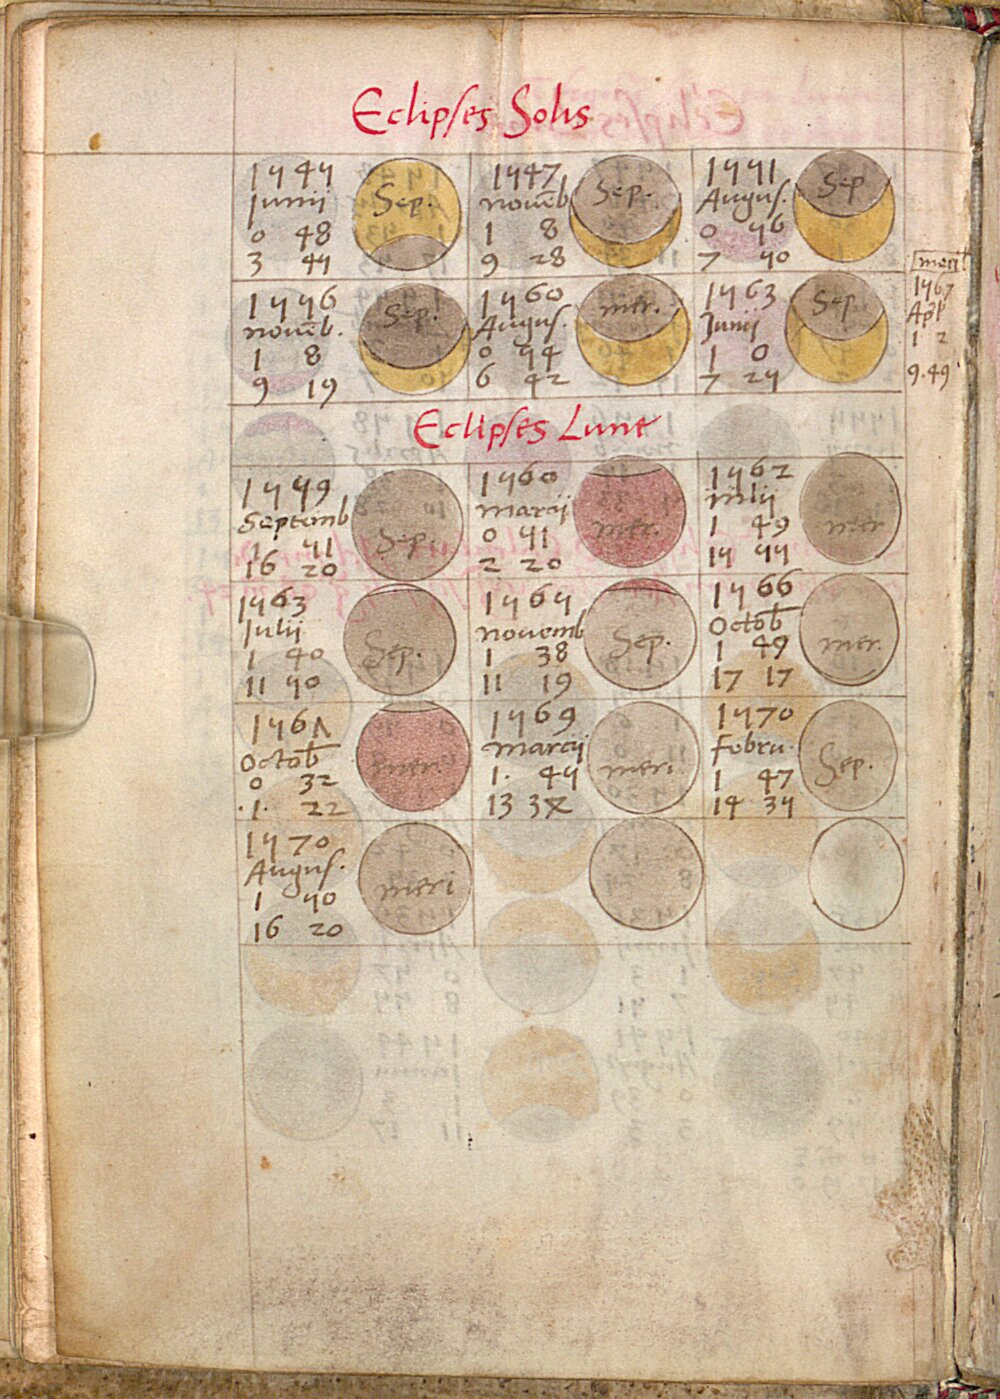 Eclipses Solis
1545
Junii
0 48
3 45
Sep.
1547
Novēb
1 8
9 28
Sep.
1551
Augus.
0 56
7 50
Sep
1556
Novēb.
1 8
9 19
Sep.
1560
Augus.
0 54
6 42
mer.
1563
Junii
1 0
7 25
Sep.
meri
1567
Apl
1 2
9.49
Eclipses Lune
1559
Septemb
1 51
16 20
Sep.
1560
Marcij
0 51
2 20
mer.
1562
Iulij
1 49
15 55
mer
1563
Iulij
1 40
11 50
Sep.
1565
Novemb
1 38
11 19
Sep.
1566
Octob
1 49
17 17
mer.
1567
Octob
0 32
1 22
mer.
1569
Marcij
1. 45
13
meri
1570
Febru.
1 47
14 35
Sep.
1570
Augus.
1 50
16 20
meri